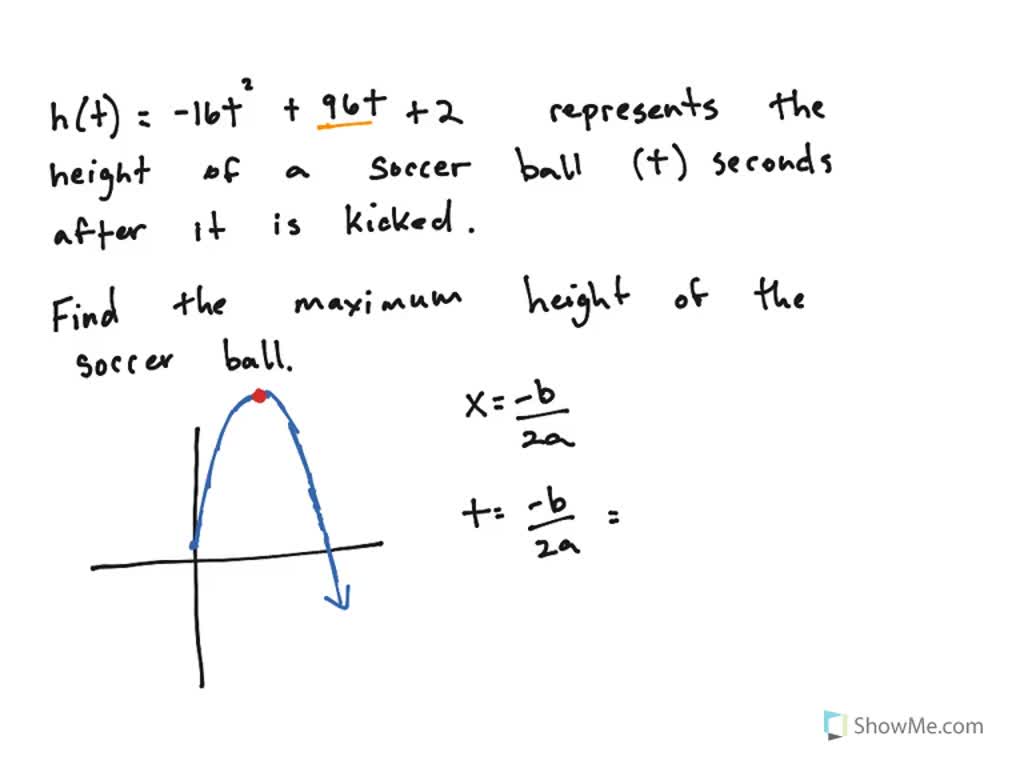 h(t) = -16t² + 96t + 2 represents the
height of a soccer ball (t) seconds
after it is kicked.
Find the maximum height of the
soccer ball.
x = -b/2a
t = -b/2a =
ShowMe.com